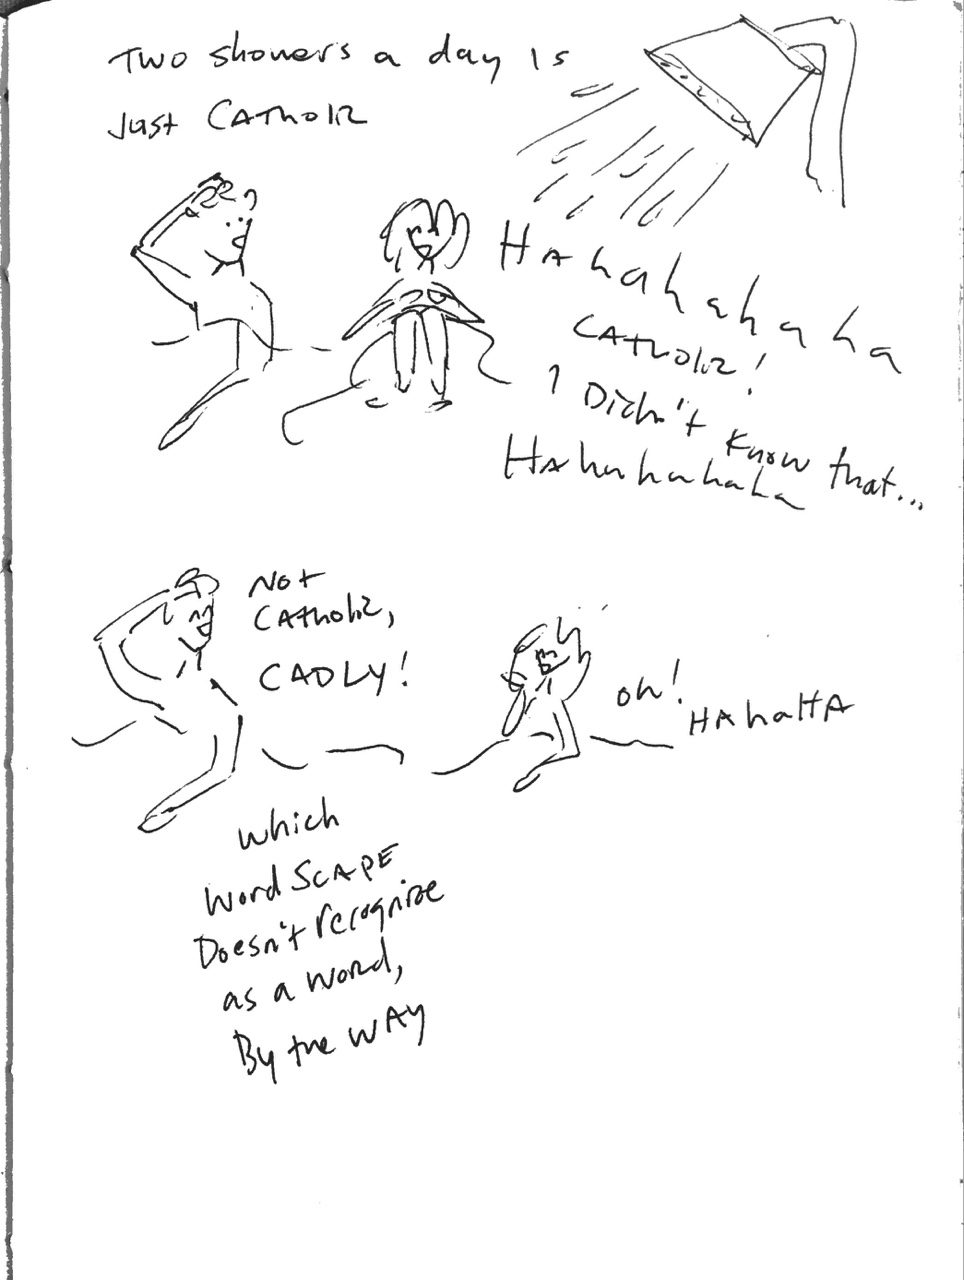 Two showers a day is
Just CATholic
HAhahahaha
CATholic!
I Didn't know that...
HAhahahaha
Not
CATholic,
CADLY!
oh!
HAhaHA
which
Word SCAPE
Doesn't recognize
as a word,
By the WAY